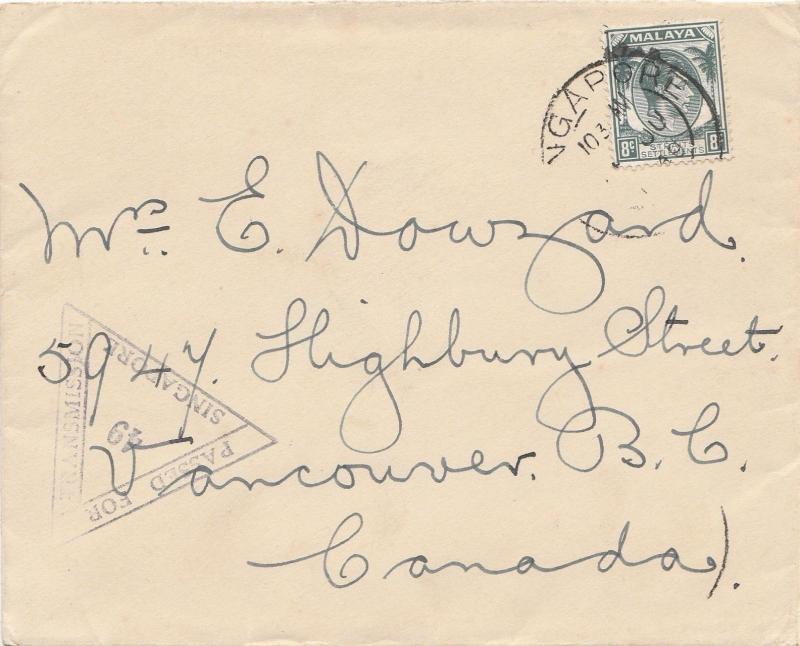 MALAYA
8c STRAITS SETTLEMENTS 8c
NGAPORE
1030 AM
JU
Mrs. E. Dowzard.
5947. Highbury Street.
Vancouver. B.C.
Canada).
PASSED FOR
TRANSMISSION
SINGAPORE
49